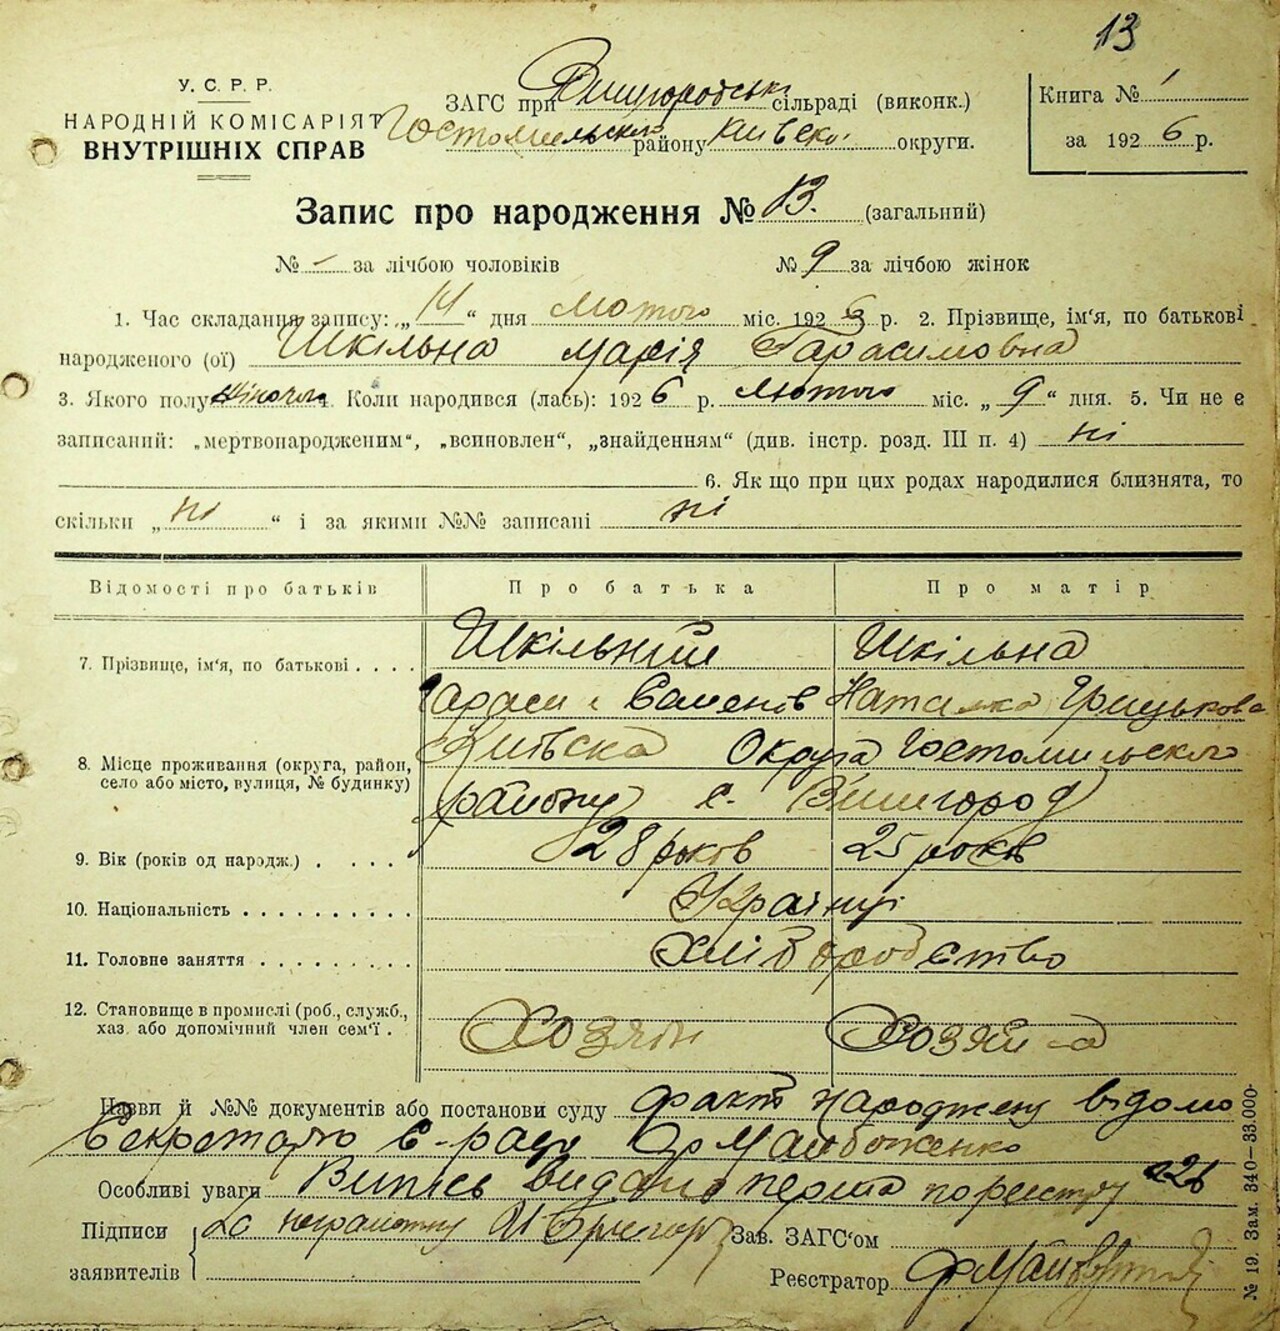 13
У. С. Р. Р.
НАРОДНІЙ КОМІСАРІЯТ
ВНУТРІШНІХ СПРАВ
ЗАГС при Вишгородськ сільраді (виконк.)
Гостомельського району Київсько округи.
Книга №
за 1926 р.
Запис про народження № 13. (загальний)
№ - за лічбою чоловіків № 9 за лічбою жінок
1. Час складання запису: „14“ дня лютого міс. 1926 р. 2. Прізвище, ім‘я, по батькові
народженого (ої) Шкільна Марія Гарасимовна
3. Якого полу жіночого 4. Коли народився (лась): 1926 р. лютого міс. „9“ дня. 5. Чи не є
записаний: „мертвонародженим“, „всиновлен“, „знайденням“ (див. інстр. розд. III п. 4) ні
6. Як що при цих родах народилися близнята, то
скільки „ні“ і за якими №№ записані ні
Відомості про батьків Про батька Про матір
7. Прізвище, ім‘я, по батькові . . . . Шкільний Шкільна
Гарасим Семенов Наталка Грицькова
8. Місце проживання (округа, район, село або місто, вулиця, № будинку) Київська Округа Гостомильского
району с. Вишгород
9. Вік (років од народж.) . . . . 28 років 25 років
10. Національність . . . . . . . . . . Українці
11. Головне заняття . . . . . . . . . Хліборобство
12. Становище в промислі (роб., служб.,
хаз. або допомічний член сем‘ї . Хозяін Хозяйка
Назви й №№ документів або постанови суду факт народжену відомо
Секретарю с-ради
Особливі уваги Випись видано перша по реєстру
Підписи За неграмотну
заявителів
Зав. ЗАГС‘ом
Реєстратор
№ 19. Зам. 340—33.000